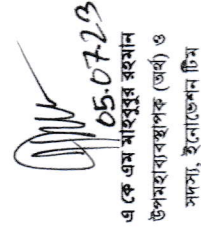 05.07.23
এ কে এম মাহবুবুর রহমান
উপমহাব্যবস্থাপক (অর্থ) ও
সদস্য, ইনোভেশন টিম